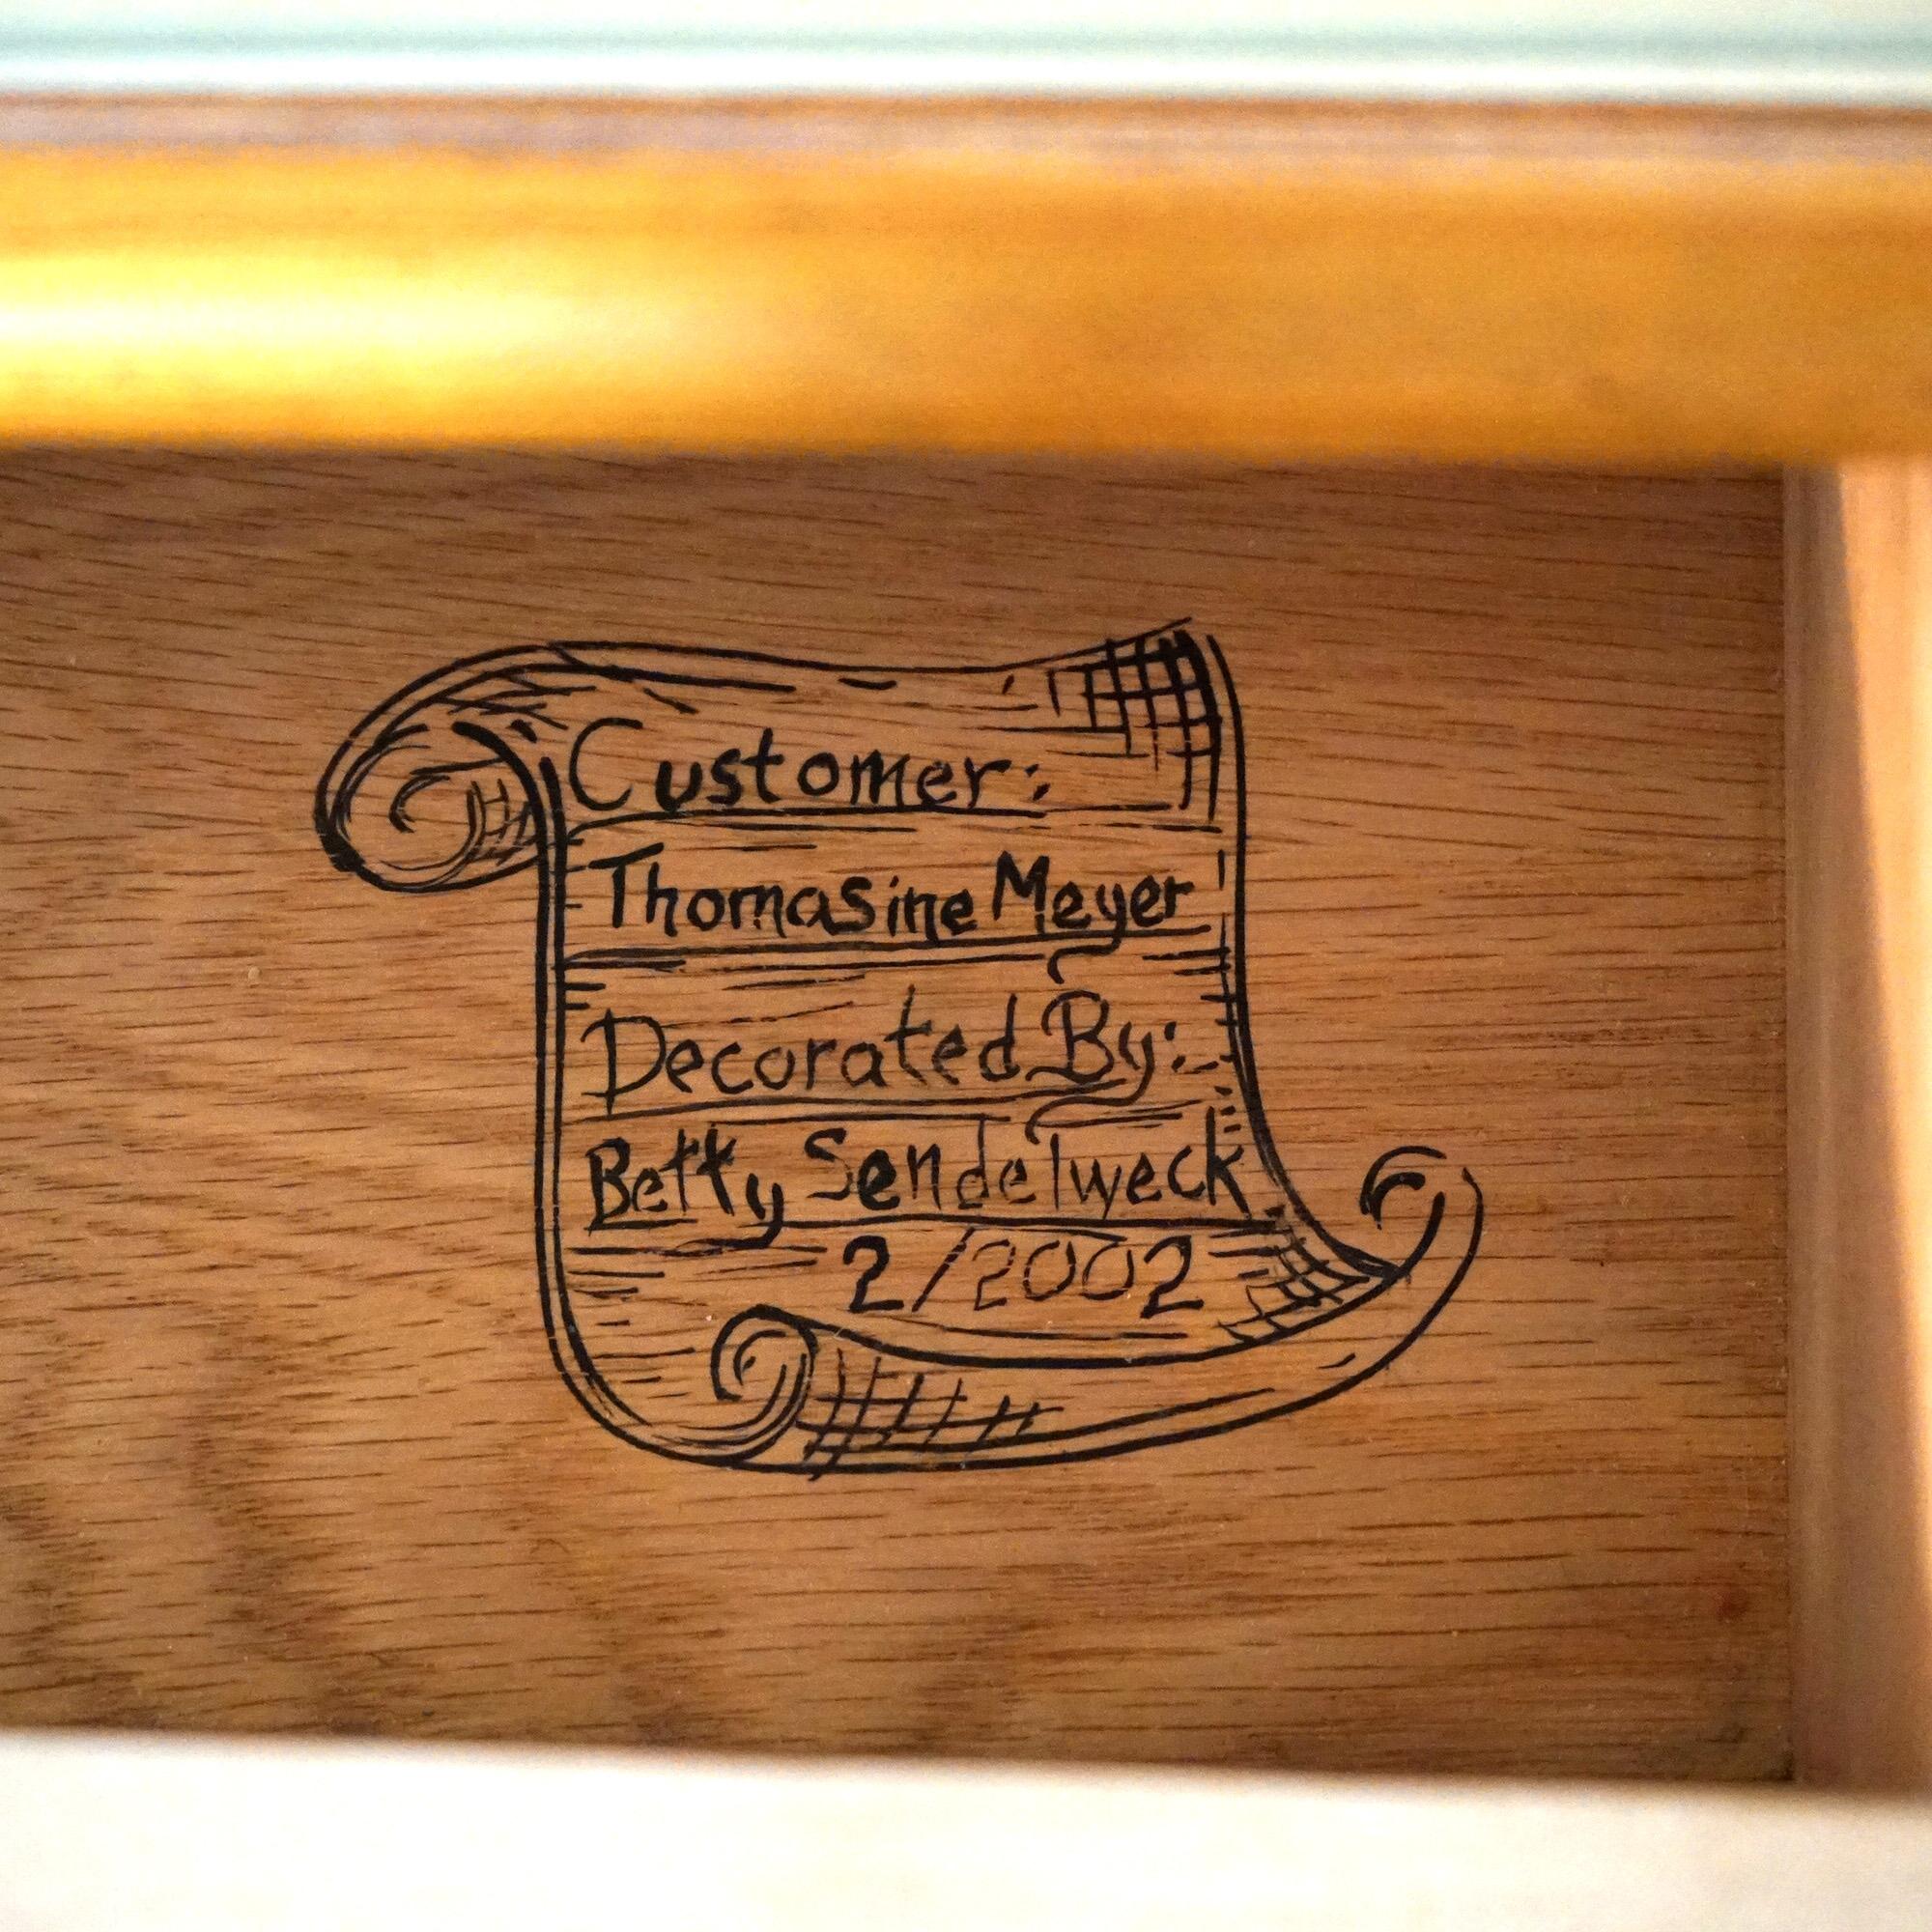 Customer:
Thomasine Meyer
Decorated By:
Betty Sendelweck
2/2002